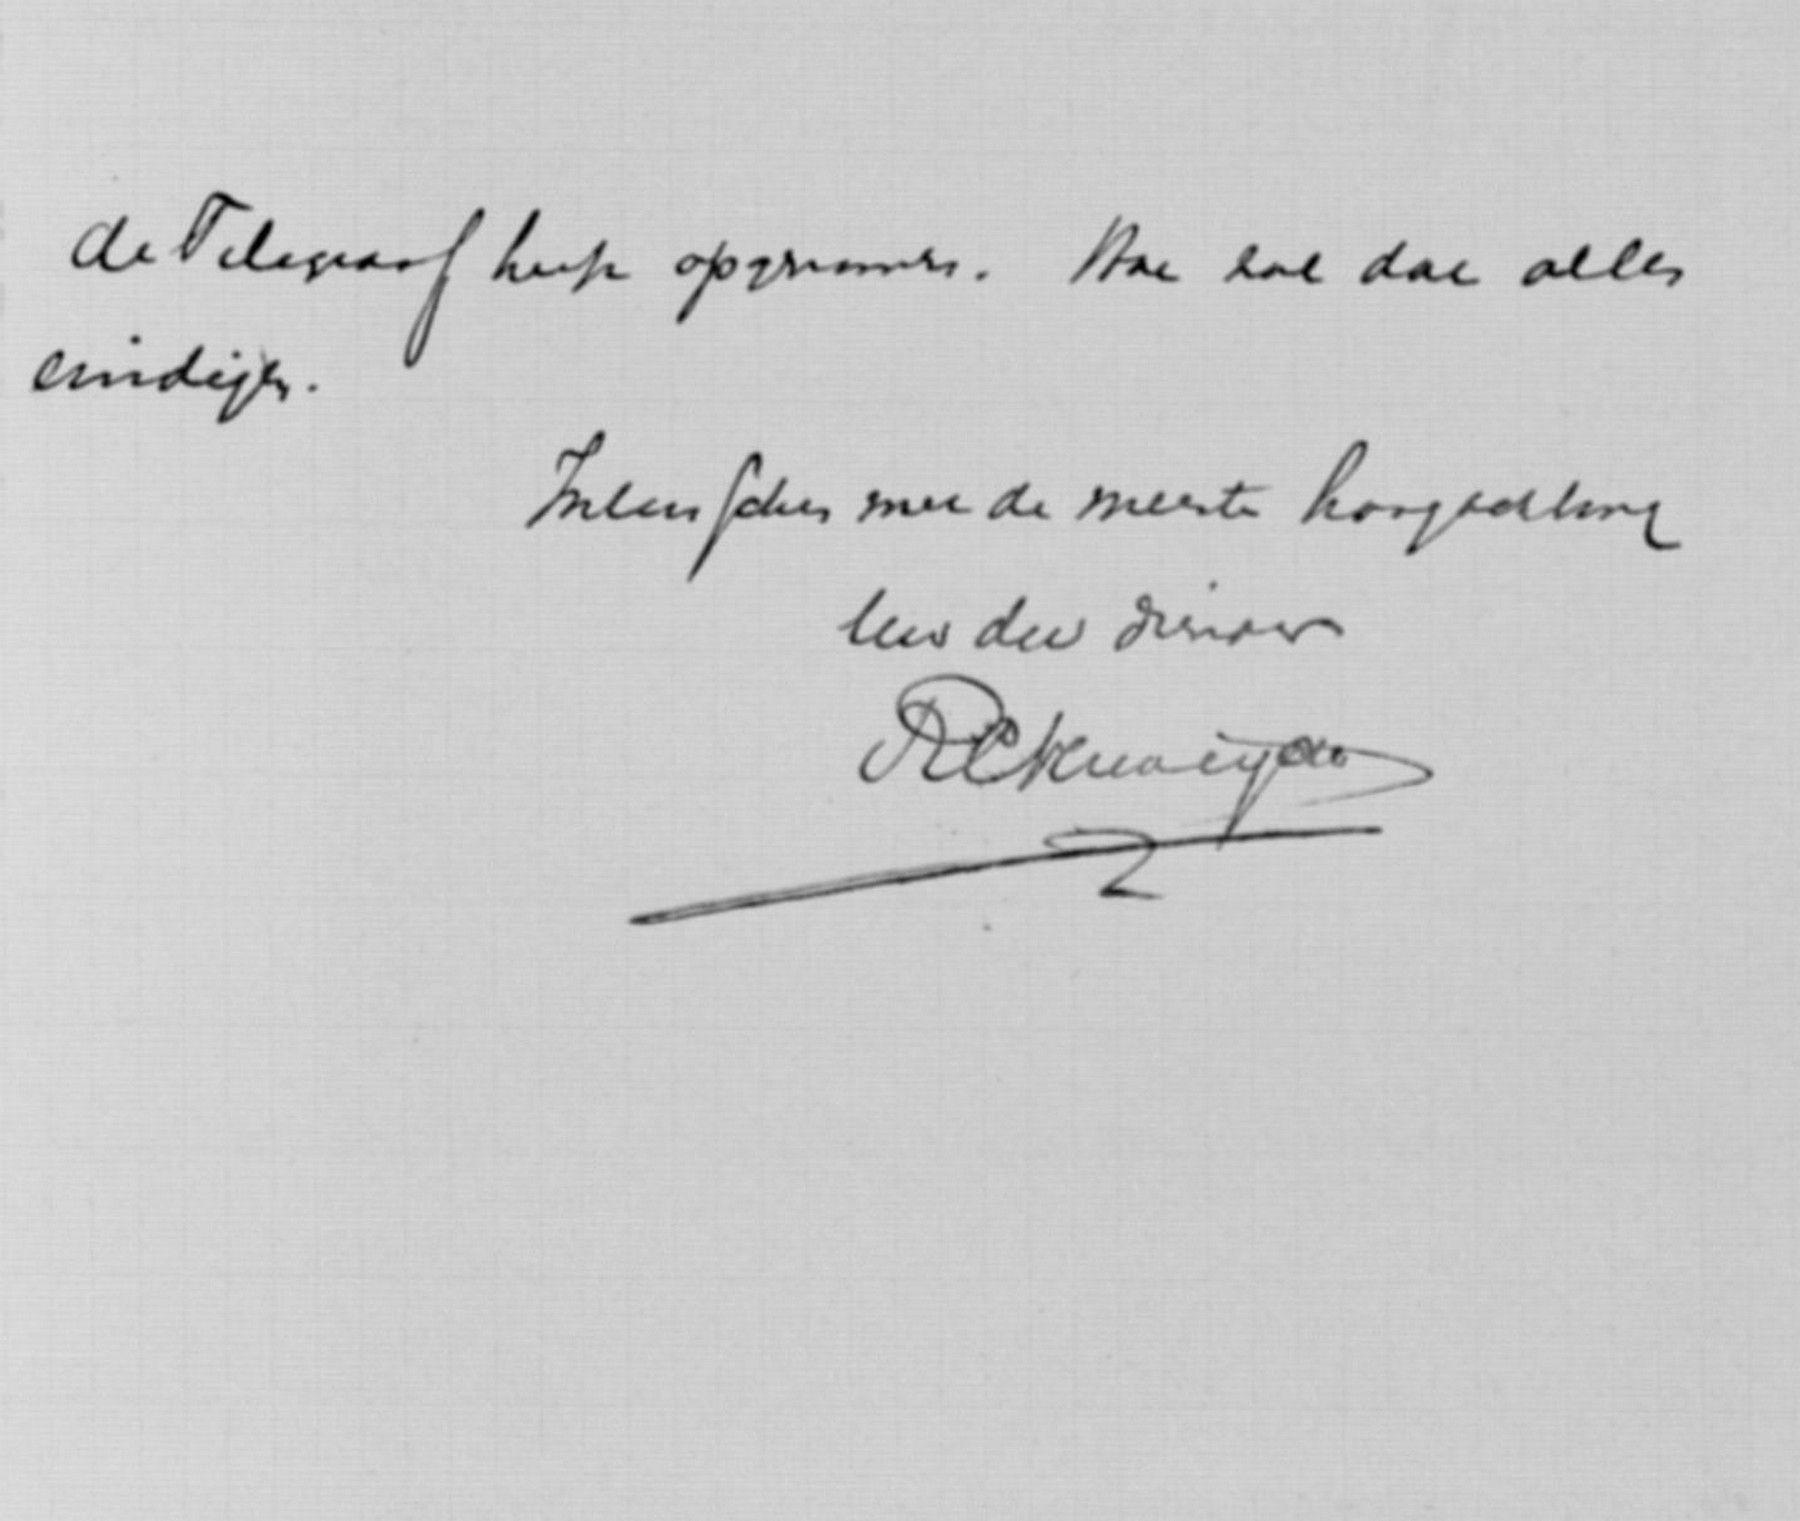 de Telegraaf heeft opgenomen. Hoe zal dat alles
eindigen.
Inlusschen met de meeste hoogachting
Uw dw dienaar